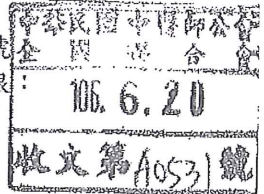 中華民國中醫師公會
全國聯合會
106. 6. 20
收文第A0531號